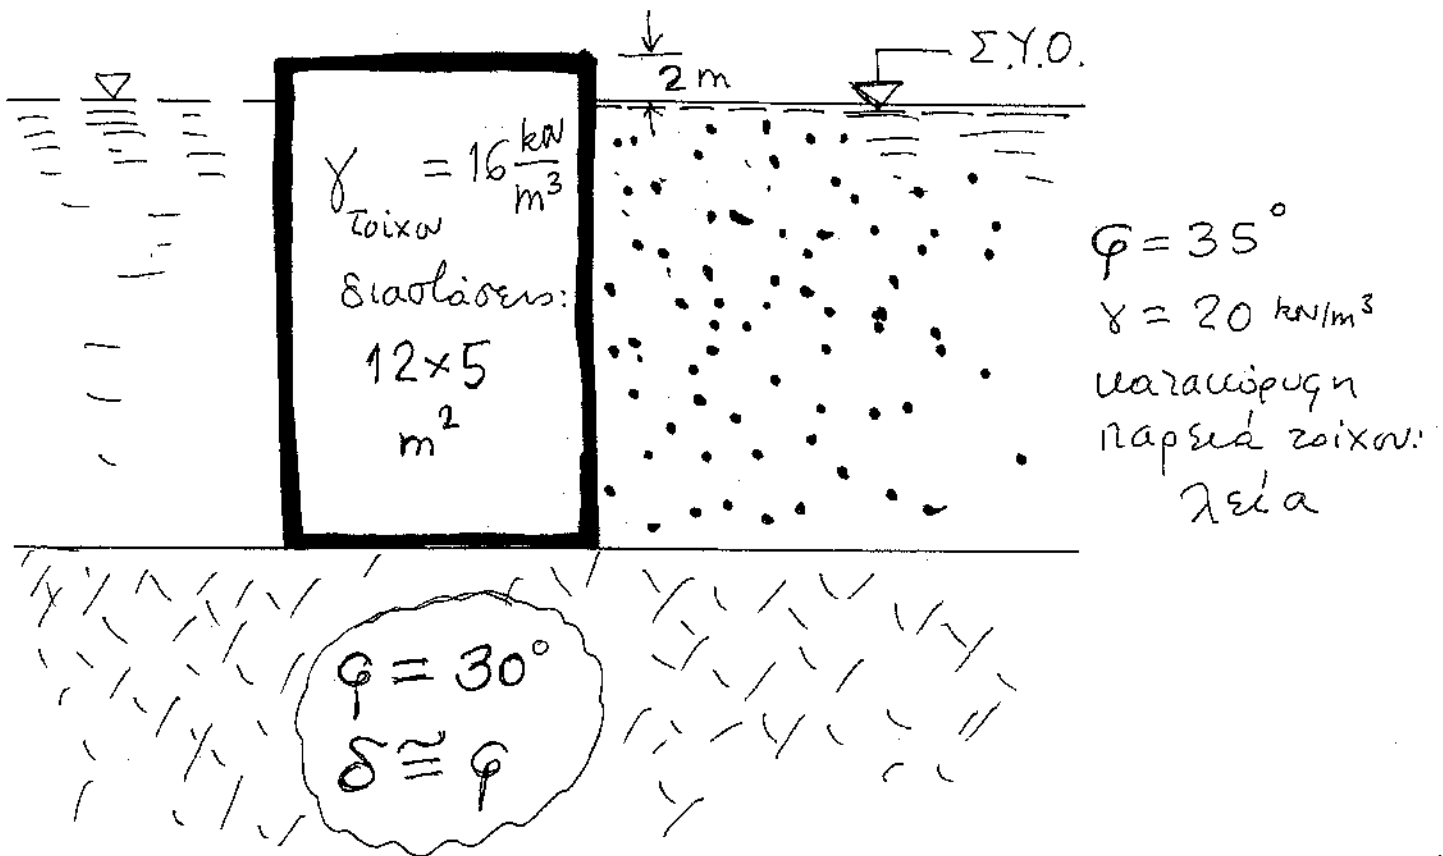 2 m
Σ.Υ.Ο.
γ τοίχου = 16 kN/m³
διαστάσεις:
12×5
m²
φ = 35°
γ = 20 kN/m³
κατακόρυφη
παρειά τοίχου:
λεία
φ = 30°
δ ≅ φ